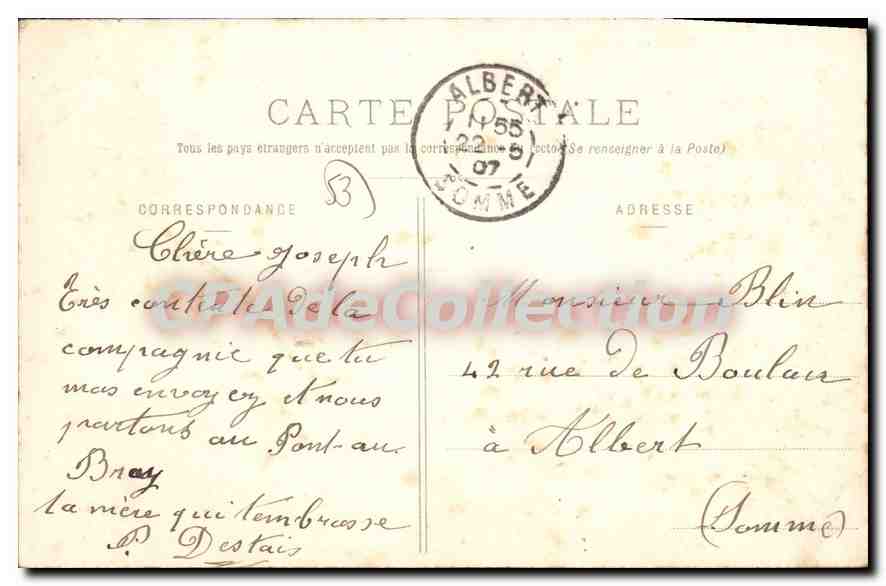 CARTE POSTALE
Tous les pays étrangers n'acceptent pas la correspondance au recto (Se renseigner à la Poste)
ALBERT
11 55
22 -9
07
SOMME
53
CORRESPONDANCE
ADRESSE
Chère Joseph
Très contente de la
compagnie que tu
mas envoyez et nous
partons au Pont-au
Bray
ta mère qui tembrasse
P. Destais
Monsieur Blin
42 rue de
à Albert
(Somme)
CPAdeCollection.com